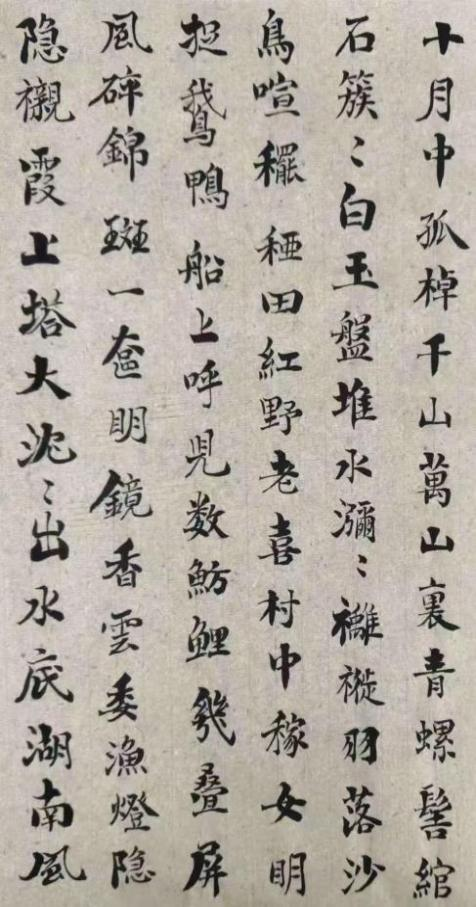 十月中孤棹千山萬山裏青螺髻綰
石簇〻白玉盤堆水瀰〻䙰褷羽落沙
鳥喧䆉稏田紅野老喜村中稼女明
捉鵝鴨船上呼兒数魴鯉幾叠屏
風碎錦斑一奩明鏡香雲委漁燈隐
隐襯霞上塔大沈〻出水底湖南風